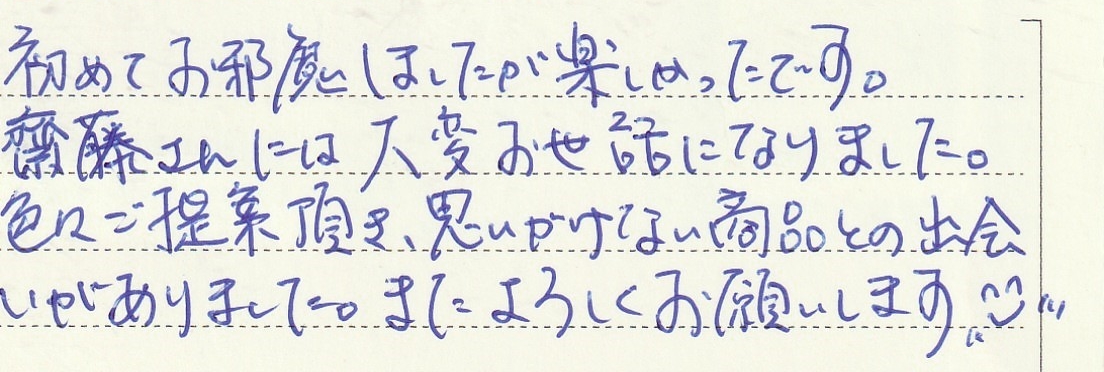 初めてお邪魔しましたが楽しかったです。
齋藤さんには大変お世話になりました。
色々ご提案頂き、思いがけない商品との出会
いがありました。またよろしくお願いします